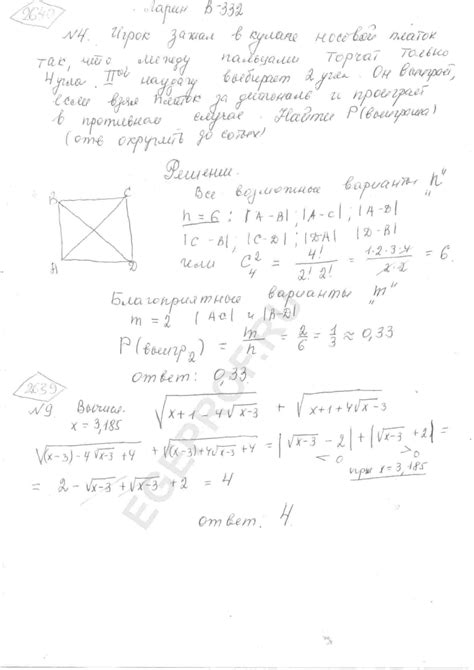 2640
Ларин В-332
№4. Игрок зажал в кулаке носовой платок
так, что между пальцами торчат только
4 угла. IIой наудачу выбирает 2 угла. Он выиграет,
если взял платок за диагональ и проиграет
в противном случае. Найти P(выигрыша)
(отв округлить до сотых)
Решение.
Все возможные варианты "n"
B C
n=6: |A-B| |A-C| |A-D|
|C-B| |C-D| |DA| |D-B|
A D
или C_4^2 = 4!/(2! 2!) = (1·2·3·4)/(2·2) = 6.
Благоприятные варианты "m"
m=2 |AC| и |A-D|
P(выигр_2) = m/n = 2/6 = 1/3 ≈ 0,33
ответ: 0,33.
2639
№9 Вычисл. √(x+1-4√(x-3)) + √(x+1+4√(x-3))
x = 3,185
√((x-3)-4√(x-3)+4) + √((x-3)+4√(x-3)+4) = |√(x-3) - 2| + |√(x-3) + 2| =
<0 >0
при x=3,185
= 2-√(x-3)+√(x-3)+2 = 4
ответ: 4.
EGEPROF.RU